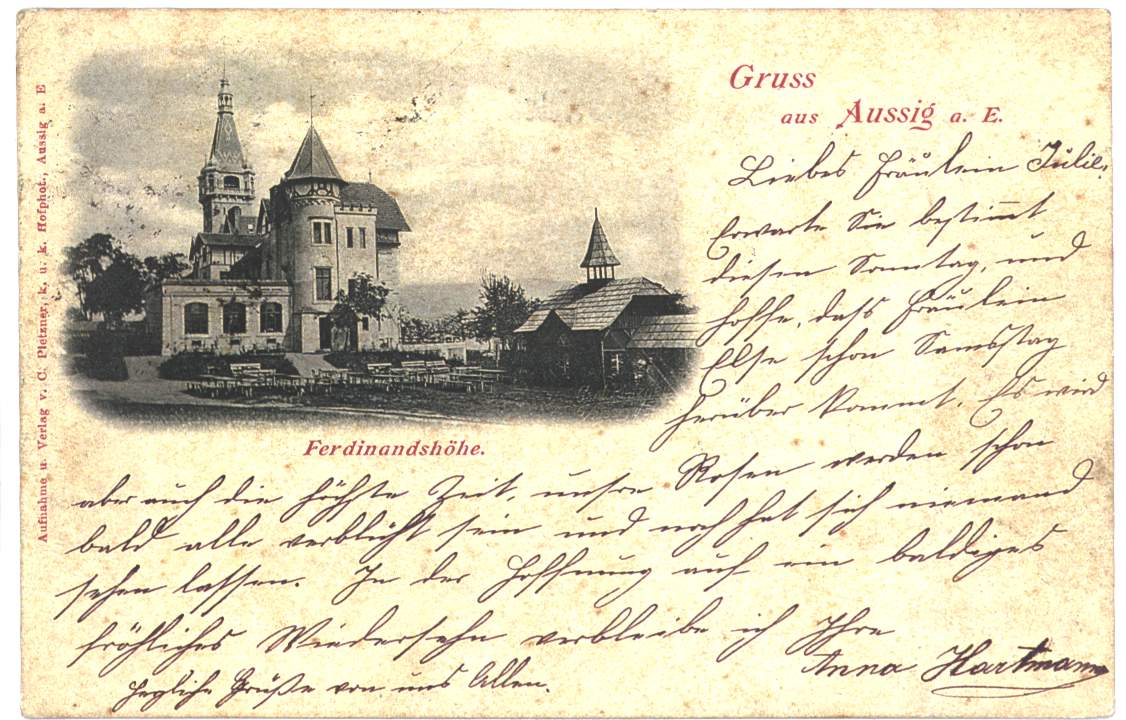 Gruss
aus Aussig a. E.
Liebes Fräulein Julie!
Erwarte Sie bestimmt
diesen Sonntag, und
hoffe, dass Fräulein
Else schon Samstag
herüber kommt. Es wird
aber auch die höchste Zeit, unsre Rosen werden schon
bald alle verblüht sein und noch hat sich niemand
sehen lassen. In der Hoffnung auf ein baldiges
fröhliches Wiedersehn verbleibe ich Ihre
Anna Hartmann
Herzliche Grüße von uns Allen.
Ferdinandshöhe.
Aufnahme u. Verlag v. C. Pietzner, k. u. k. Hofphot., Aussig a. E